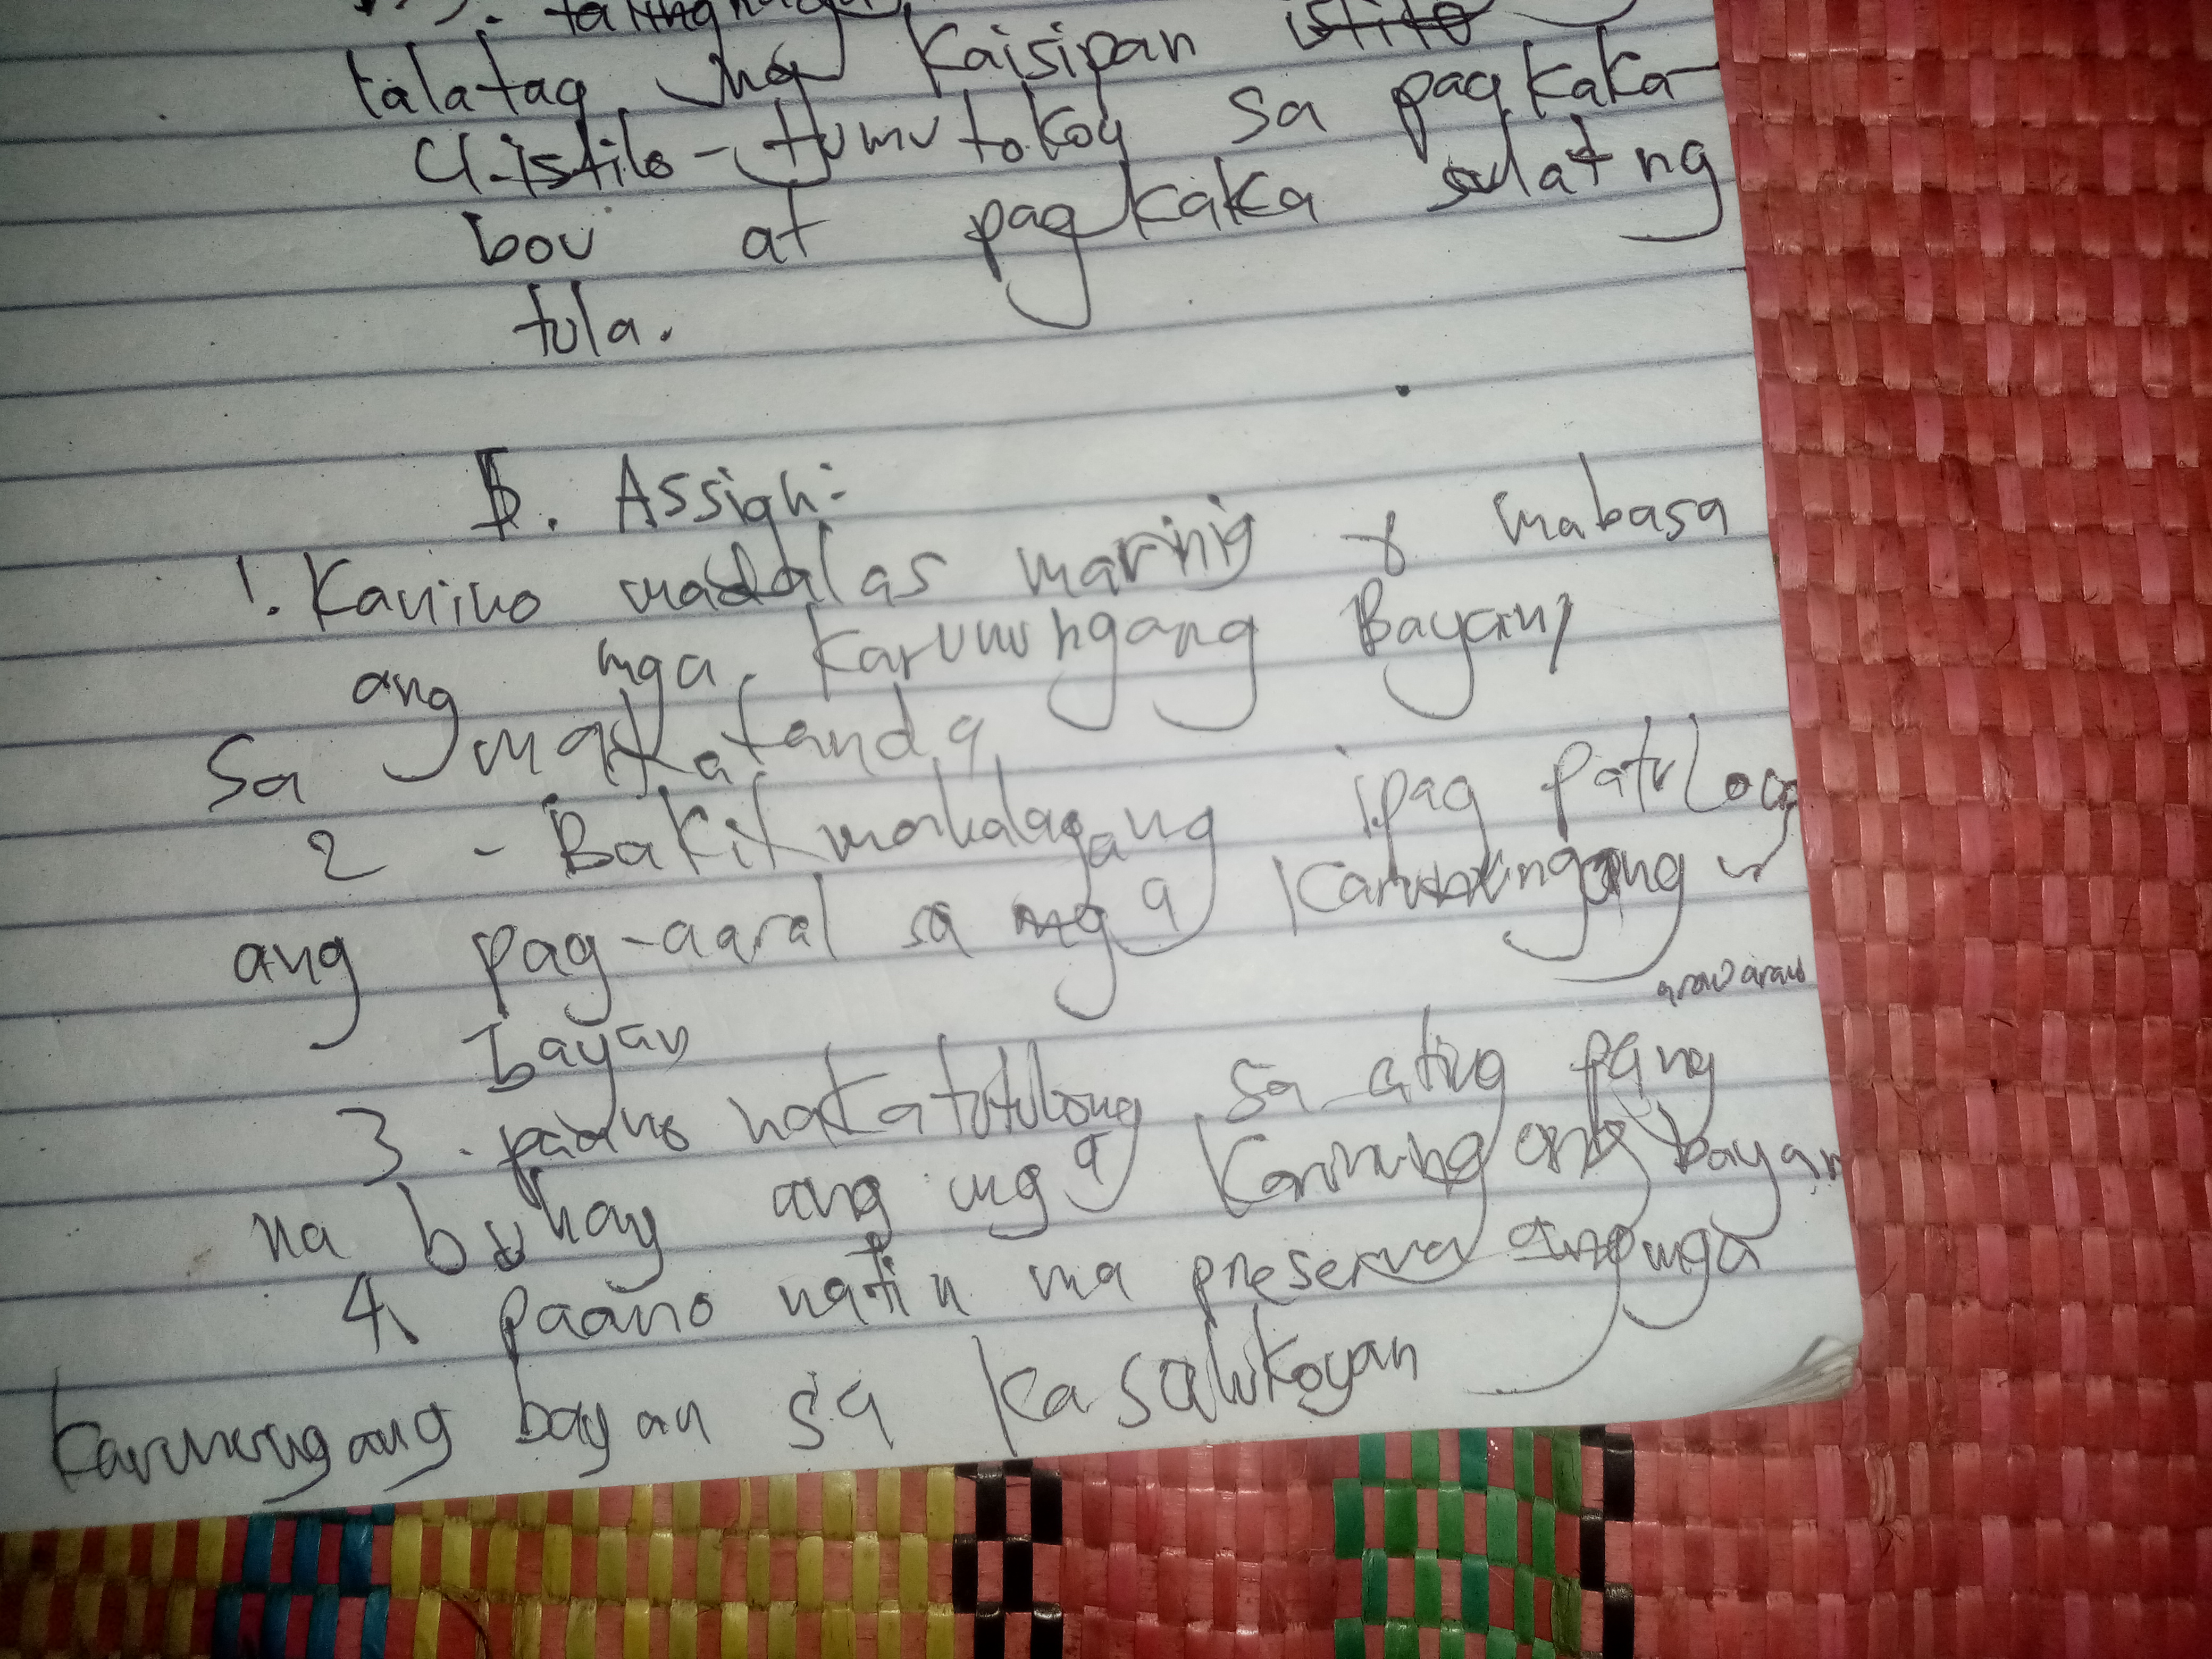 talatag ng kaisipan istilo
4. istilo - tumutokoy sa pagkaka-
bou at pagkaka sulat ng
tula.
B. Assign:
1. Kanino madalas marinig & mabasa
ang mga karunungang Bayan?
Sa matatanda
2 - Bakit mahalagang ipag patuloy
ang pag-aaral sa mga karunungang
bayan
araw araw
3. paano nakatutulong sa ating pang
na buhay ang mga karunungang bayan
4. paano natin ma preserva ang mga
karunungang bayan sa kasalukoyan